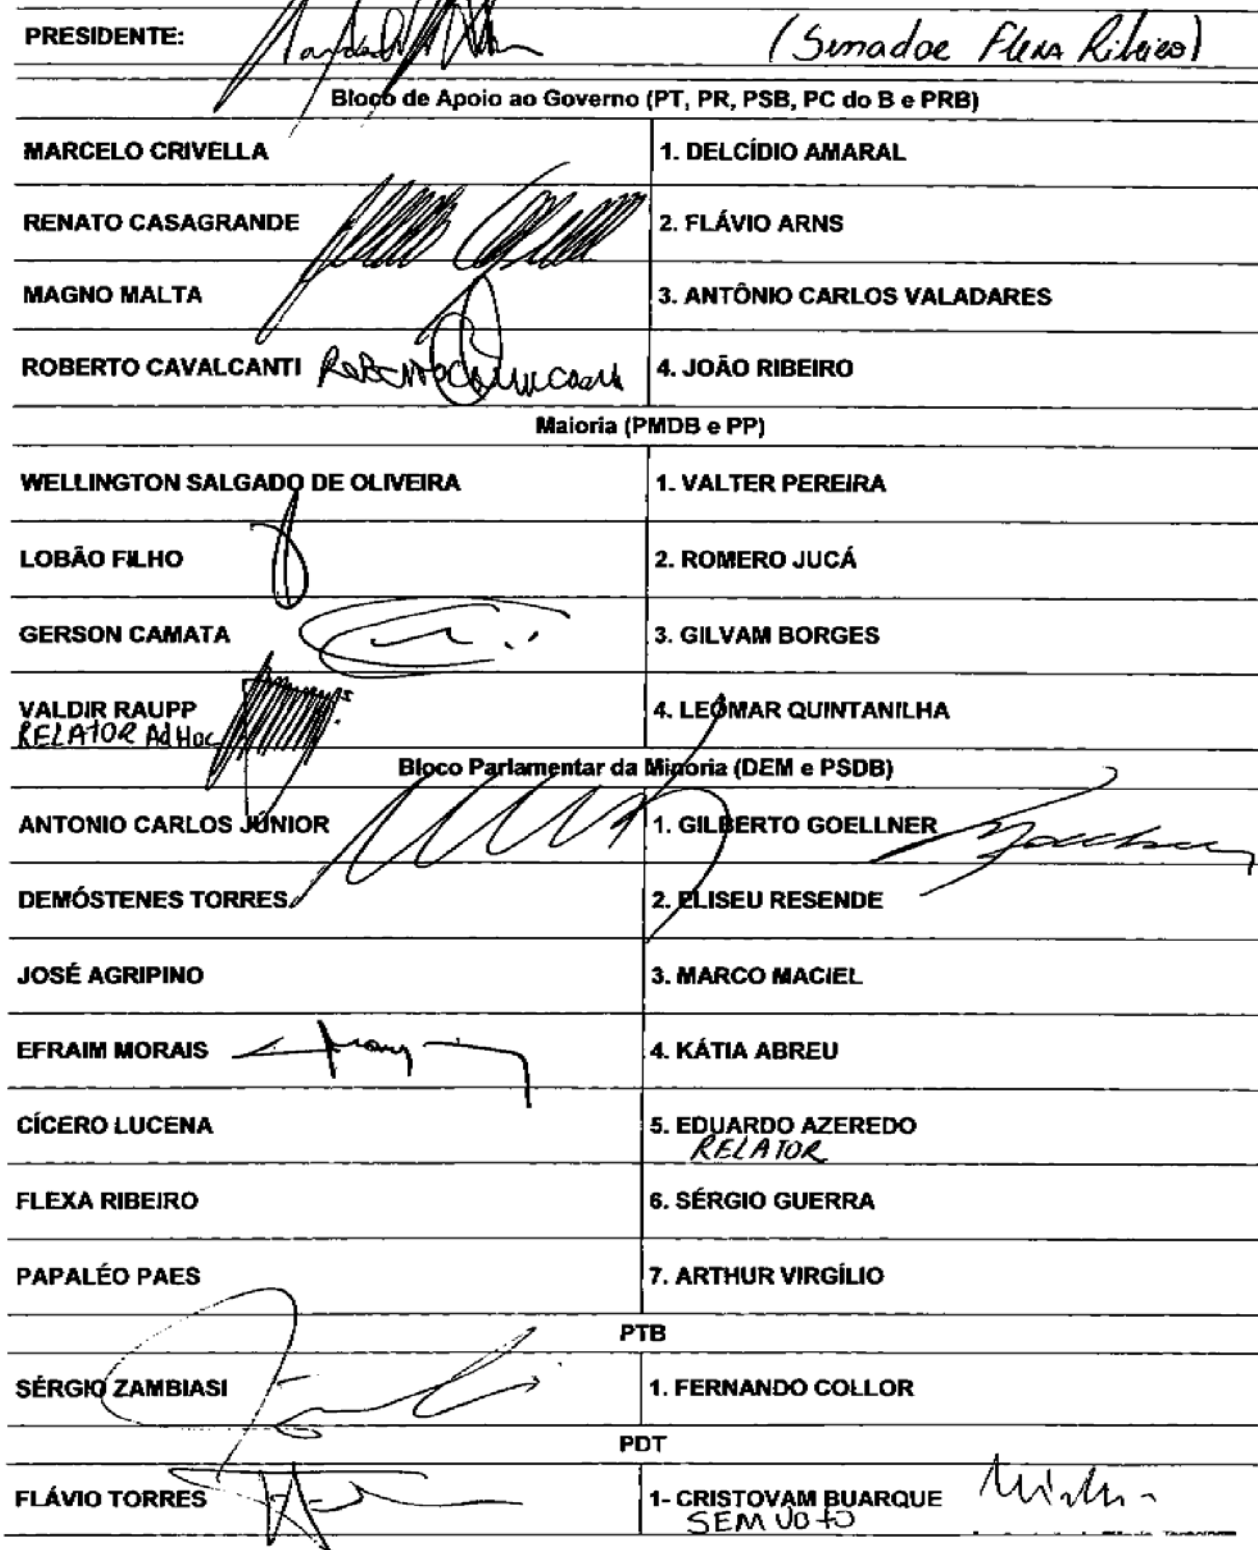 PRESIDENTE: (Senador Flexa Ribeiro)
Bloco de Apoio ao Governo (PT, PR, PSB, PC do B e PRB)
MARCELO CRIVELLA 1. DELCÍDIO AMARAL
RENATO CASAGRANDE 2. FLÁVIO ARNS
MAGNO MALTA 3. ANTÔNIO CARLOS VALADARES
ROBERTO CAVALCANTI 4. JOÃO RIBEIRO
Maioria (PMDB e PP)
WELLINGTON SALGADO DE OLIVEIRA 1. VALTER PEREIRA
LOBÃO FILHO 2. ROMERO JUCÁ
GERSON CAMATA 3. GILVAM BORGES
VALDIR RAUPP 4. LEOMAR QUINTANILHA
RELATOR Ad Hoc
Bloco Parlamentar da Minoria (DEM e PSDB)
ANTONIO CARLOS JÚNIOR 1. GILBERTO GOELLNER
DEMÓSTENES TORRES 2. ELISEU RESENDE
JOSÉ AGRIPINO 3. MARCO MACIEL
EFRAIM MORAIS 4. KÁTIA ABREU
CÍCERO LUCENA 5. EDUARDO AZEREDO
RELATOR
FLEXA RIBEIRO 6. SÉRGIO GUERRA
PAPALÉO PAES 7. ARTHUR VIRGÍLIO
PTB
SÉRGIO ZAMBIASI 1. FERNANDO COLLOR
PDT
FLÁVIO TORRES 1- CRISTOVAM BUARQUE
SEM VOTO